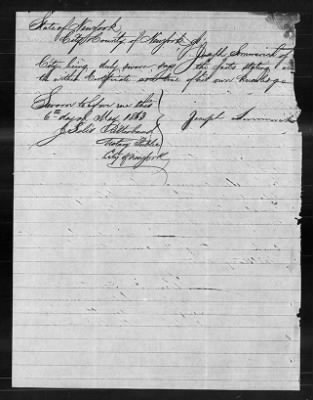 State of New York
City & County of New York ss
Joseph
City being duly sworn says the facts stated in
the within Certificate are true of his own knowledge
Sworn before me this
6th day of May 1863
Joseph
J. Solis Ritterband
Notary Public
City of New York